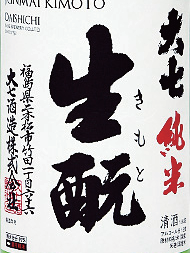 KINMAI KIMOTO
DAISHICHI
大七
純米
生酛
きもと
福島県二本松市竹田一丁目六六
大七酒造株式会社
清酒